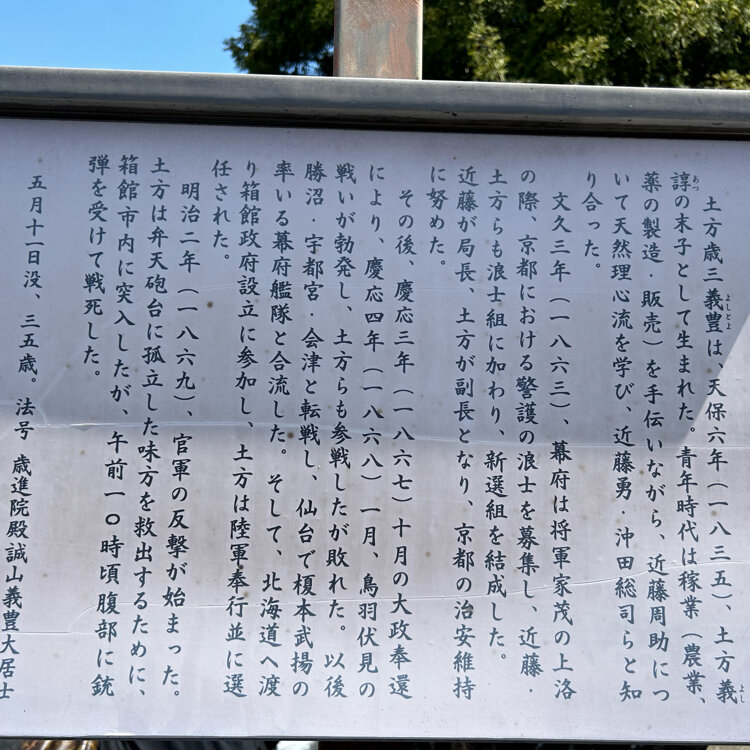 土方歳三義豊は、天保六年（一八三五）、土方義
諄の末子として生まれた。青年時代は稼業（農業、
薬の製造・販売）を手伝いながら、近藤周助につ
いて天然理心流を学び、近藤勇・沖田総司らと知
り合った。
文久三年（一八六三）、幕府は将軍家茂の上洛
の際、京都における警護の浪士を募集し、近藤・
土方らも浪士組に加わり、新選組を結成した。
近藤が局長、土方が副長となり、京都の治安維持
に努めた。
その後、慶応三年（一八六七）十月の大政奉還
により、慶応四年（一八六八）一月、鳥羽伏見の
戦いが勃発し、土方らも参戦したが敗れた。以後
勝沼・宇都宮・会津と転戦し、仙台で榎本武揚の
率いる幕府艦隊と合流した。そして、北海道へ渡
り箱館政府設立に参加し、土方は陸軍奉行並に選
任された。
明治二年（一八六九）、官軍の反撃が始まった。
土方は弁天砲台に孤立した味方を救出するために、
箱館市内に突入したが、午前一〇時頃腹部に銃
弾を受けて戦死した。
五月十一日没、三五歳。法号 歳進院殿誠山義豊大居士